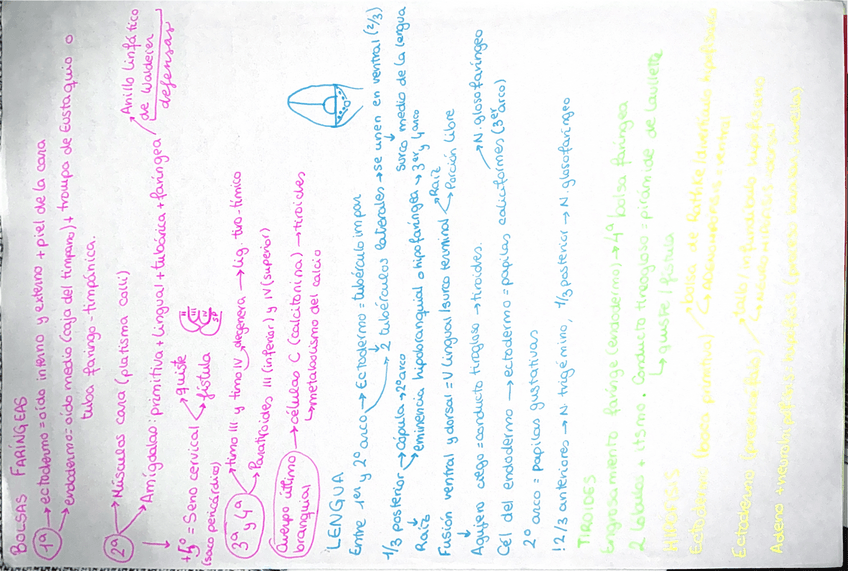 BOLSAS FARÍNGEAS
1ª → ectodermo = oído interno y externo + piel de la cara
→ endodermo = oído medio (caja del tímpano) + trompa de Eustaquio o
tuba faringo-timpánica.
2ª → Músculos cara (platisma colli)
→ Amígdalas: primitiva + lingual + tubárica + faríngea
Anillo linfático
de Waldeyer
defensas
↓
+5º = Seno cervical → quiste
→ fístula
(saco pericárdico)
3ª y 4ª → timo III y timo IV degenera → lig. tiro-tímico
→ Paratiroides III (inferior) y IV (superior)
Cuerpo último
branquial → células C (calcitonina) → tiroides
↳ metabolismo del calcio
LENGUA
Entre 1er y 2º arco → Ectodermo = tubérculo impar
→ 2 tubérculos laterales → se unen en ventral (2/3)
↓
surco medio de la lengua
1/3 posterior → Cópula → 2º arco
→ eminencia hipobranquial o hipofaríngea → 3er y 4 arco
↓
Raíz
Fusión ventral y dorsal = V lingual / surco terminal → Raíz
→ Porción libre
↓
Agujero ciego = conducto tirogloso → tiroides.
Cél del endodermo → ectodermo = papilas caliciformes (3er arco) → N. glosofaríngeo
2º arco = papilas gustativas
! 2/3 anteriores → N trigémino, 1/3 posterior → N. glosofaríngeo
TIROIDES
Engrosamiento faringe (endodermo) → 4ª bolsa faríngea
2 lóbulos + itsmo. Conducto tireogloso = pirámide de Laullette
↳ quiste / fístula
HIPÓFISIS
Ectodermo (boca primitiva)